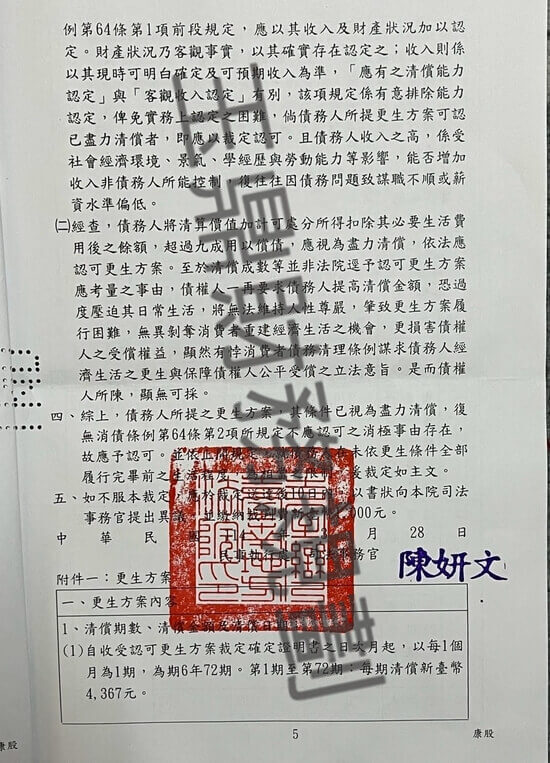 例第64條第1項前段規定，應以其收入及財產狀況加以認
定。財產狀況乃客觀事實，以其確實存在認定之；收入則係
以其現時可明白確定及可預期收入為準，「應有之清償能力
認定」與「客觀收入認定」有別，該項規定係有意排除能力
認定，俾免實務上認定之困難，倘債務人所提更生方案可認
已盡力清償者，即應以裁定認可。且債務人收入之高，係受
社會經濟環境、景氣、學經歷與勞動能力等影響，能否增加
收入非債務人所能控制，復往往因債務問題致謀職不順或薪
資水準偏低。
㈡經查，債務人將清算價值加計可處分所得扣除其必要生活費
用後之餘額，超過九成用以償債，應視為盡力清償，依法應
認可更生方案。至於清償成數等並非法院逕予認可更生方案
應考量之事由，債權人一再要求債務人提高清償金額，恐過
度壓迫其日常生活，將無法維持人性尊嚴，肇致更生方案履
行困難，無異剝奪消費者重建經濟生活之機會，更損害債權
人之受償權益，顯然有悖消費者債務清理條例謀求債務人經
濟生活之更生與保障債權人公平受償之立法意旨。是而債權
人所陳，顯無可採。
四、綜上，債務人所提之更生方案，其條件已視為盡力清償，復
無消債條例第64條第2項所規定不應認可之消極事由存在，
故應予認可。並依上開規定，就債務人在未依更生條件全部
履行完畢前之生活程度，為相當之限制，爰裁定如主文。
五、如不服本裁定，應於裁定送達後10日內，以書狀向本院司法
事務官提出異議，並繳納裁判費新臺幣1,000元。
中華民國 年 月28日
民事執行處 司法事務官 陳妍文
附件一：更生方案
一、更生方案內容
1、清償期數、清償金額及清償日期
(1)自收受認可更生方案裁定確定證明書之日次月起，以每1個
月為1期，為期6年72期。第1期至第72期：每期清償新臺幣
4,367元。
5
康股
康股